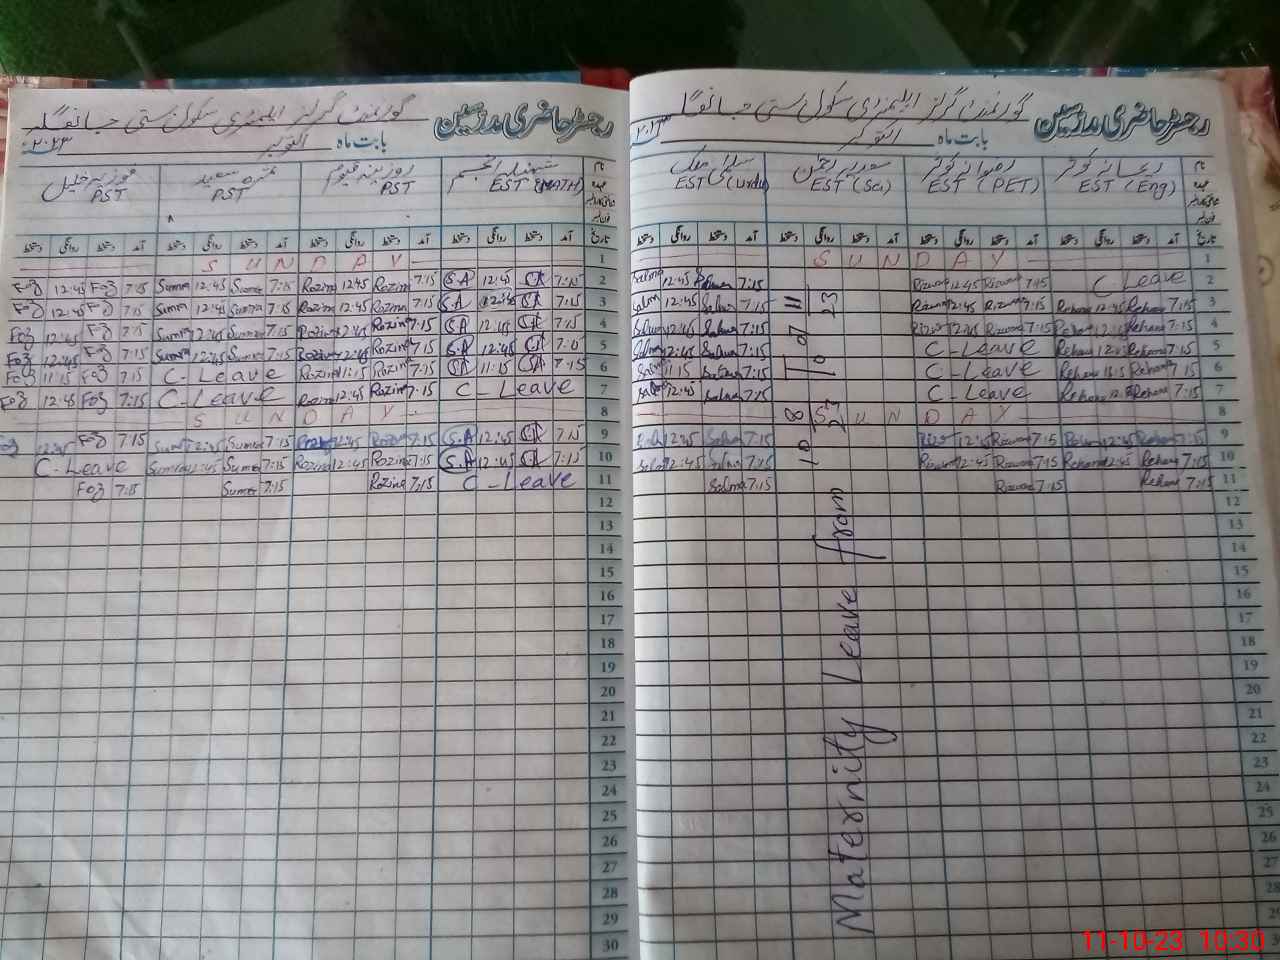 رجسٹر حاضری مدرسین گورنمنٹ گرلز ایلیمنٹری سکول بستی
بابت ماہ اکتوبر ۲۰۲۳
EST (MATH) PST PST PST
آمد دستخط روانگی دستخط آمد دستخط روانگی دستخط آمد دستخط روانگی دستخط آمد دستخط روانگی دستخط تاریخ
SUNDAY 1
Foz 12:45 Foz 7:15 Suma 12:45 Suma 7:15 Rozina 12:45 Rozina 7:15 S.A 12:45 SA 7:15 2
Foz 12:45 Foz 7:15 Suma 12:45 Suma 7:15 Rozina 12:45 Rozina 7:15 S.A 12:45 SA 7:15 3
Foz 12:45 Foz 7:15 Suma 12:45 Suma 7:15 Rozina 12:45 Rozina 7:15 SA 12:45 SA 7:15 4
Foz 12:45 Foz 7:15 Suma 12:45 Suma 7:15 Rozina 12:45 Rozina 7:15 S.A 12:45 SA 5
Foz 11:15 Foz 7:15 C-Leave Rozina 11:15 Rozina 7:15 SA 11:15 SA 7:15 6
Foz 12:45 Foz 7:15 C-Leave Rozina 12:45 Rozina 7:15 C-Leave 7
SUNDAY 8
12:45 Foz 7:15 Suma 12:45 Suma 7:15 Rozina 12:45 Rozina 7:15 S.A 12:45 SA 7:15 9
C-Leave Sumra 12:45 Suma 7:15 Rozina 12:45 Rozina 7:15 S.A 12:45 SA 7:15 10
Foz 7:15 Suma 7:15 Rozina 7:15 C-Leave 11
12
13
14
15
16
17
18
19
20
21
22
23
24
25
26
27
28
29
30
رجسٹر حاضری مدرسین گورنمنٹ گرلز ایلیمنٹری سکول بستی
بابت ماہ اکتوبر ۲۰۲۳
EST (Urdu) EST (Sci) EST (PET) EST (Eng)
آمد دستخط روانگی دستخط آمد دستخط روانگی دستخط آمد دستخط روانگی دستخط آمد دستخط روانگی دستخط تاریخ
SUNDAY 1
Salma 12:45 Salma 7:15 Rizwana 12:45 Rizwana 7:15 C-Leave 2
Salma 12:45 Salma 7:15 Rizwana 12:45 Rizwana 7:15 Rehana 12:45 Rehana 7:15 3
Salma 12:45 Salma 7:15 Rizwana 12:45 Rizwana 7:15 Rehana 12:45 Rehana 7:15 4
Salma 12:45 Salma 7:15 C-Leave Rehana 12:45 Rehana 7:15 5
Salma 11:15 Salma 7:15 C-Leave Rehana 11:15 Rehana 7:15 6
Salma 12:45 Salma 7:15 C-Leave Rehana 12:45 Rehana 7:15 7
SUNDAY 8
Salma 12:45 Salma 7:15 Rizwana 12:45 Rizwana 7:15 Rehana 12:45 Rehana 7:15 9
Salma 12:45 Salma 7:15 Rizwana 12:45 Rizwana 7:15 Rehana 12:45 Rehana 7:15 10
Salma 7:15 Rizwana 7:15 Rehana 7:15 11
12
13
14
15
16
17
18
19
20
21
22
23
24
25
26
27
28
29
Maternity Leave from
To
11-10-23 10:30